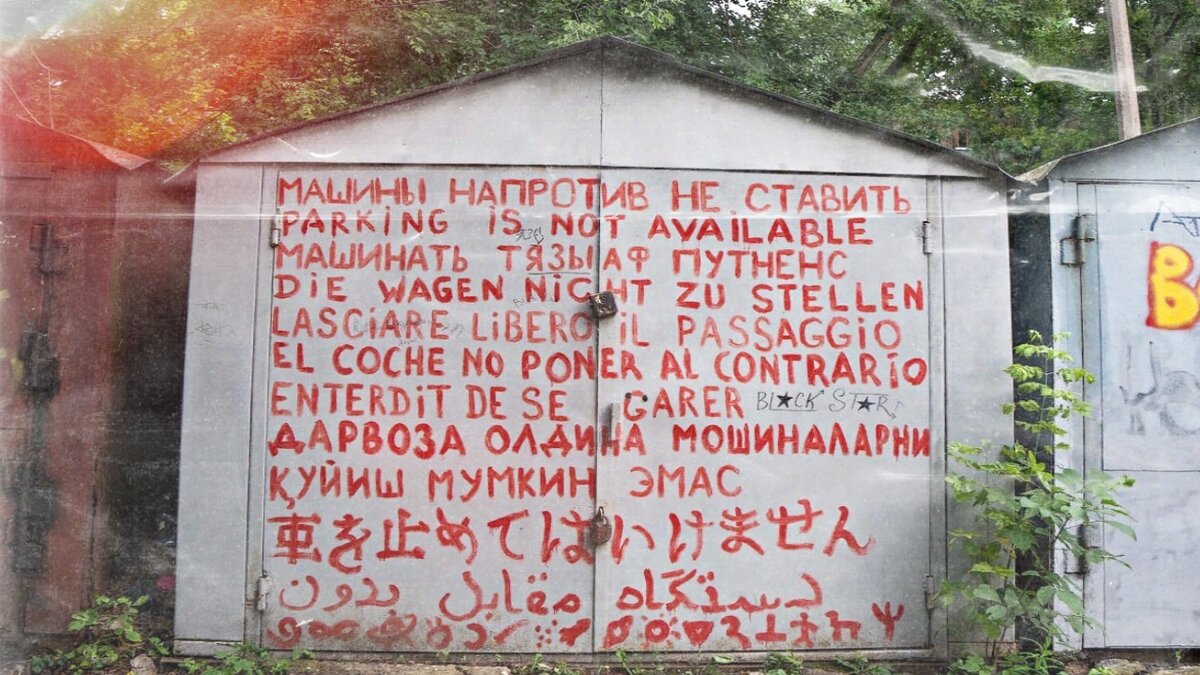 МАШИНЫ НАПРОТИВ НЕ СТАВИТЬ
PARKING IS NOT AVAILABLE
МАШИНАТЬ ТЯЗЫАФ ПУТНЕНС
DIE WAGEN NICHT ZU STELLEN
LASCIARE LIBERO IL PASSAGGIO
EL COCHE NO PONER AL CONTRARIO
ENTERDIT DE SE GARER BL★CK ST★R
ДАРВОЗА ОЛДИНА МОШИНАЛАРНИ
ҚУЙИШ МУМКИН ЭМАС
車を止めてはいけません
دستگاه مقابل بدون